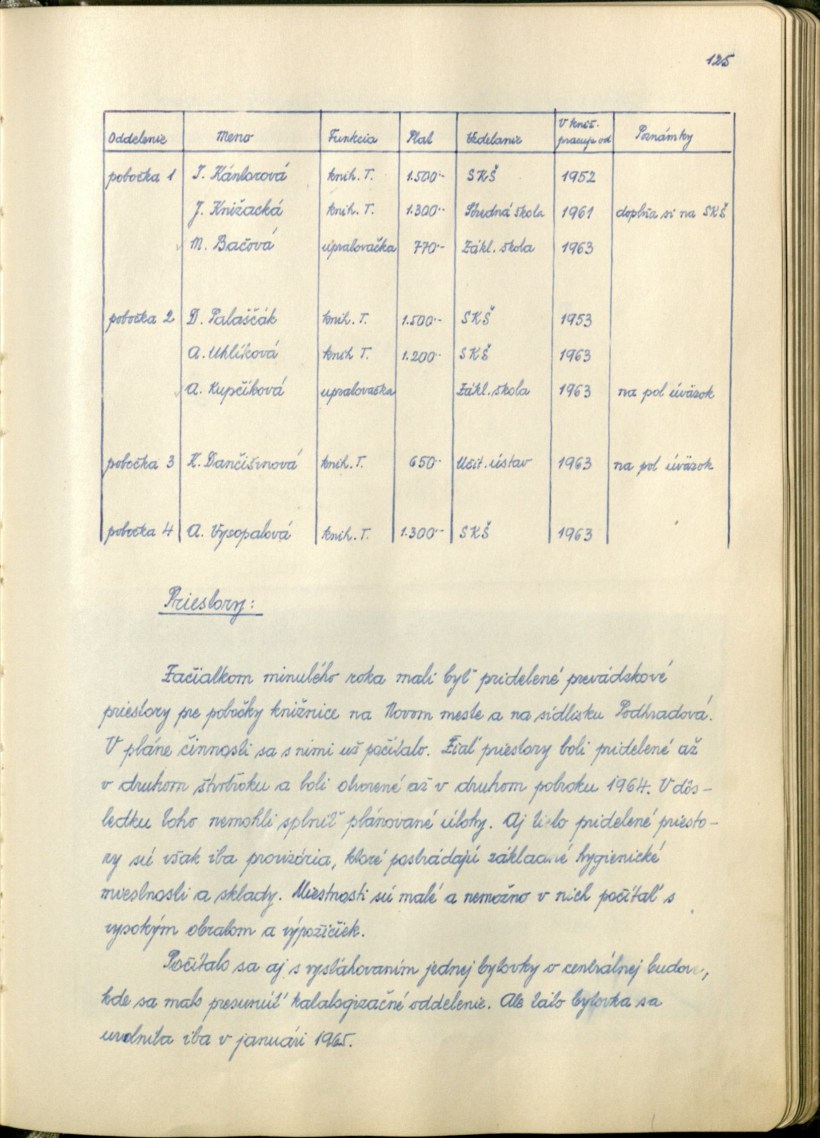 125
Oddelenie Meno Funkcia Plat Vzdelanie V kniž. pracuje od Poznámky
pobočka 1 I. Kántorová knih. T. 1.500.- SKŠ 1952
J. Knižacká knih. T. 1.300.- Stredná škola 1961 doplňa si na SKŠ
M. Bačová upratovačka 770.- Zákl. škola 1963
pobočka 2 D. Palaščák knih. T. 1.500.- SKŠ 1953
A. Uhlíková knih. T. 1.200.- SKŠ 1963
A. Kupčíková upratovačka Zákl. škola 1963 na pol úväzok
pobočka 3 K. Dančišinová knih. T. 650.- Učit. ústav 1963 na pol úväzok
pobočka 4 A. Vysopalová knih. T. 1.300.- SKŠ 1963
Priestory:
Začiatkom minulého roka mali byť pridelené prevádzkové
priestory pre pobočky knižnice na Novom meste a na sídlisku Podhradová.
V pláne činnosti sa s nimi už počítalo. Žiaľ priestory boli pridelené až
v druhom štvrťroku a boli otvorené až v druhom polroku 1964. V dôs-
ledku toho nemohli splniť plánované úlohy. Aj tieto pridelené priesto-
ry sú však iba provizória, ktoré postrádajú základné hygienické
miestnosti a sklady. Miestnosti sú malé a nemožno v nich počítať s
vysokým obratom a výpožičiek.
Počítalo sa aj s vysťahovaním jednej bytovky v centrálnej budove,
kde sa malo presunúť katalogizačné oddelenie. Ale táto bytovka sa
uvolnila iba v januári 1965.